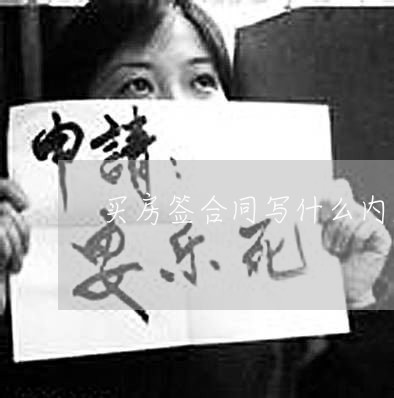 申請：
买房签合同写什么内
要乐死